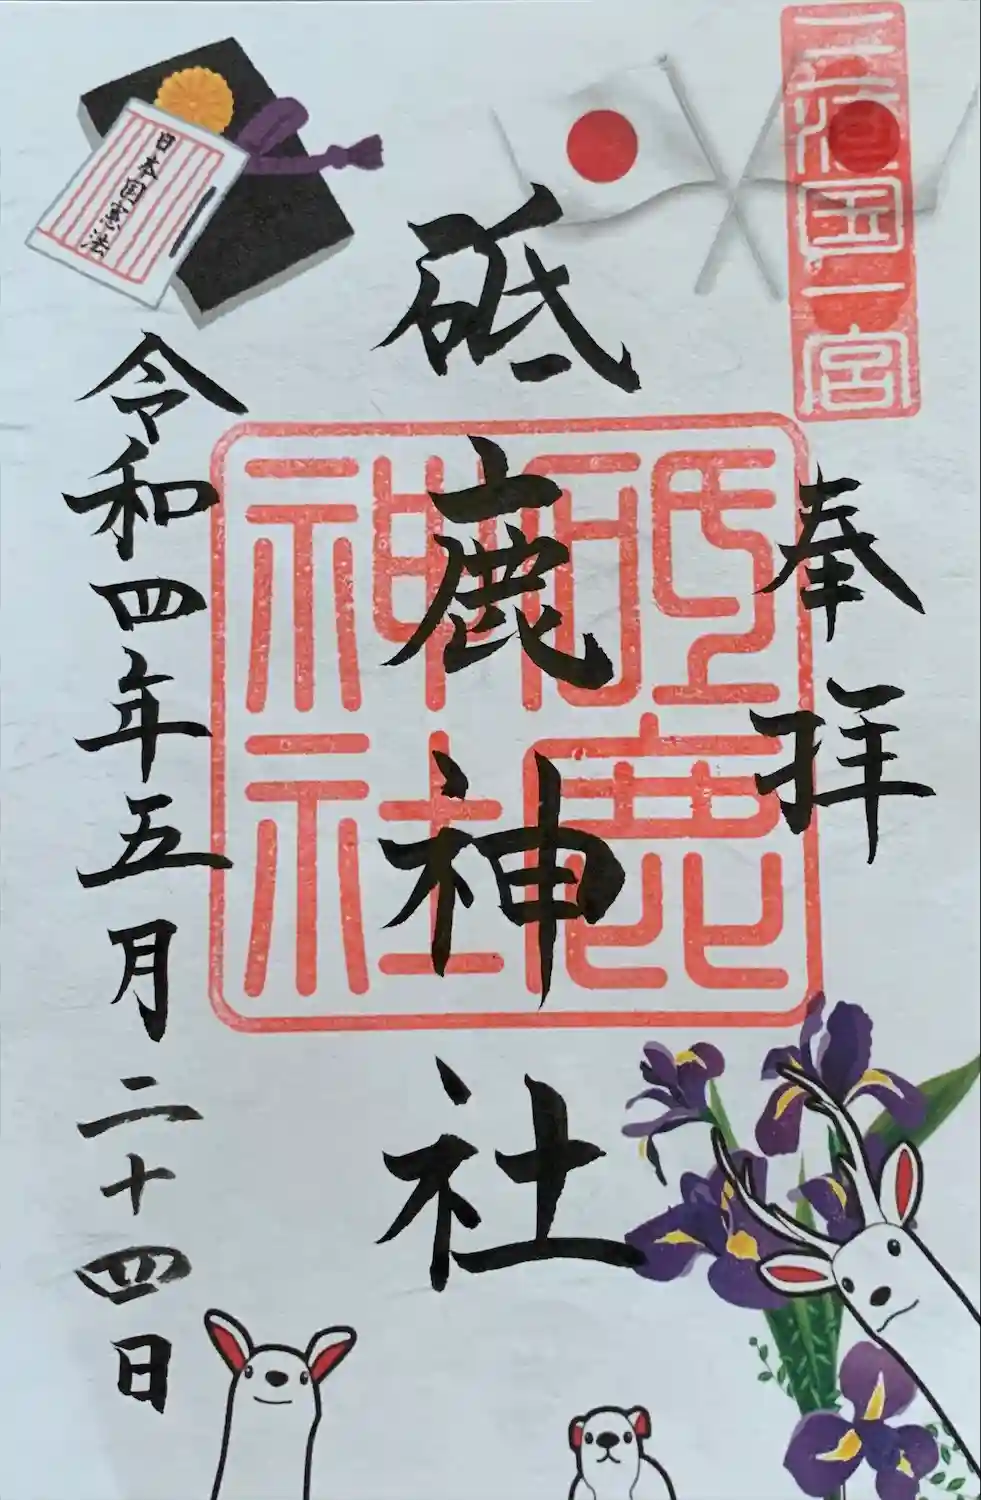 三河国一宮
奉拝
砥鹿神社
砥鹿
神社
令和四年五月二十四日
日本国憲法